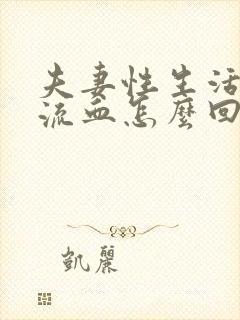 夫妻性生活
流血怎麼回
凱麗